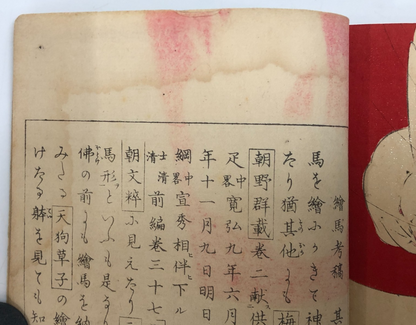 繪馬考稿 其
馬を繪にかきて神
たり猶其他にも 梅
朝野群載 巻二献供
疋 中畧 寛弘九年六月
年十一月九日明日
綱 中畧 宣秀相伴下ル
士清 清 前編巻三十七
朝文粋に見えたり
馬形といふも是なり
佛の前にも繪馬を納
みゆる 天狗草子 の繪
けたる躰を見ても知